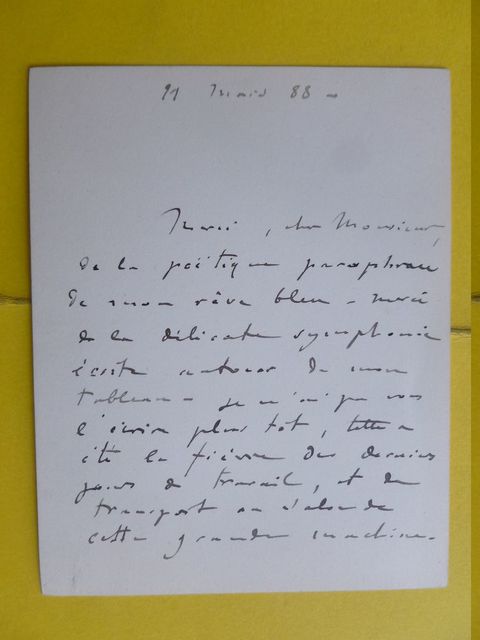 Mars 88 -
Merci, cher Monsieur,
de la poëtique paraphrase
de mon rêve bleu - merci
de la délicate symphonie
écrite autour de mon
tableau - je n'ai pu vous
l'écrire plus tôt, telle a
été la fièvre des derniers
jours de travail, et du
transport au
cette grande machine.